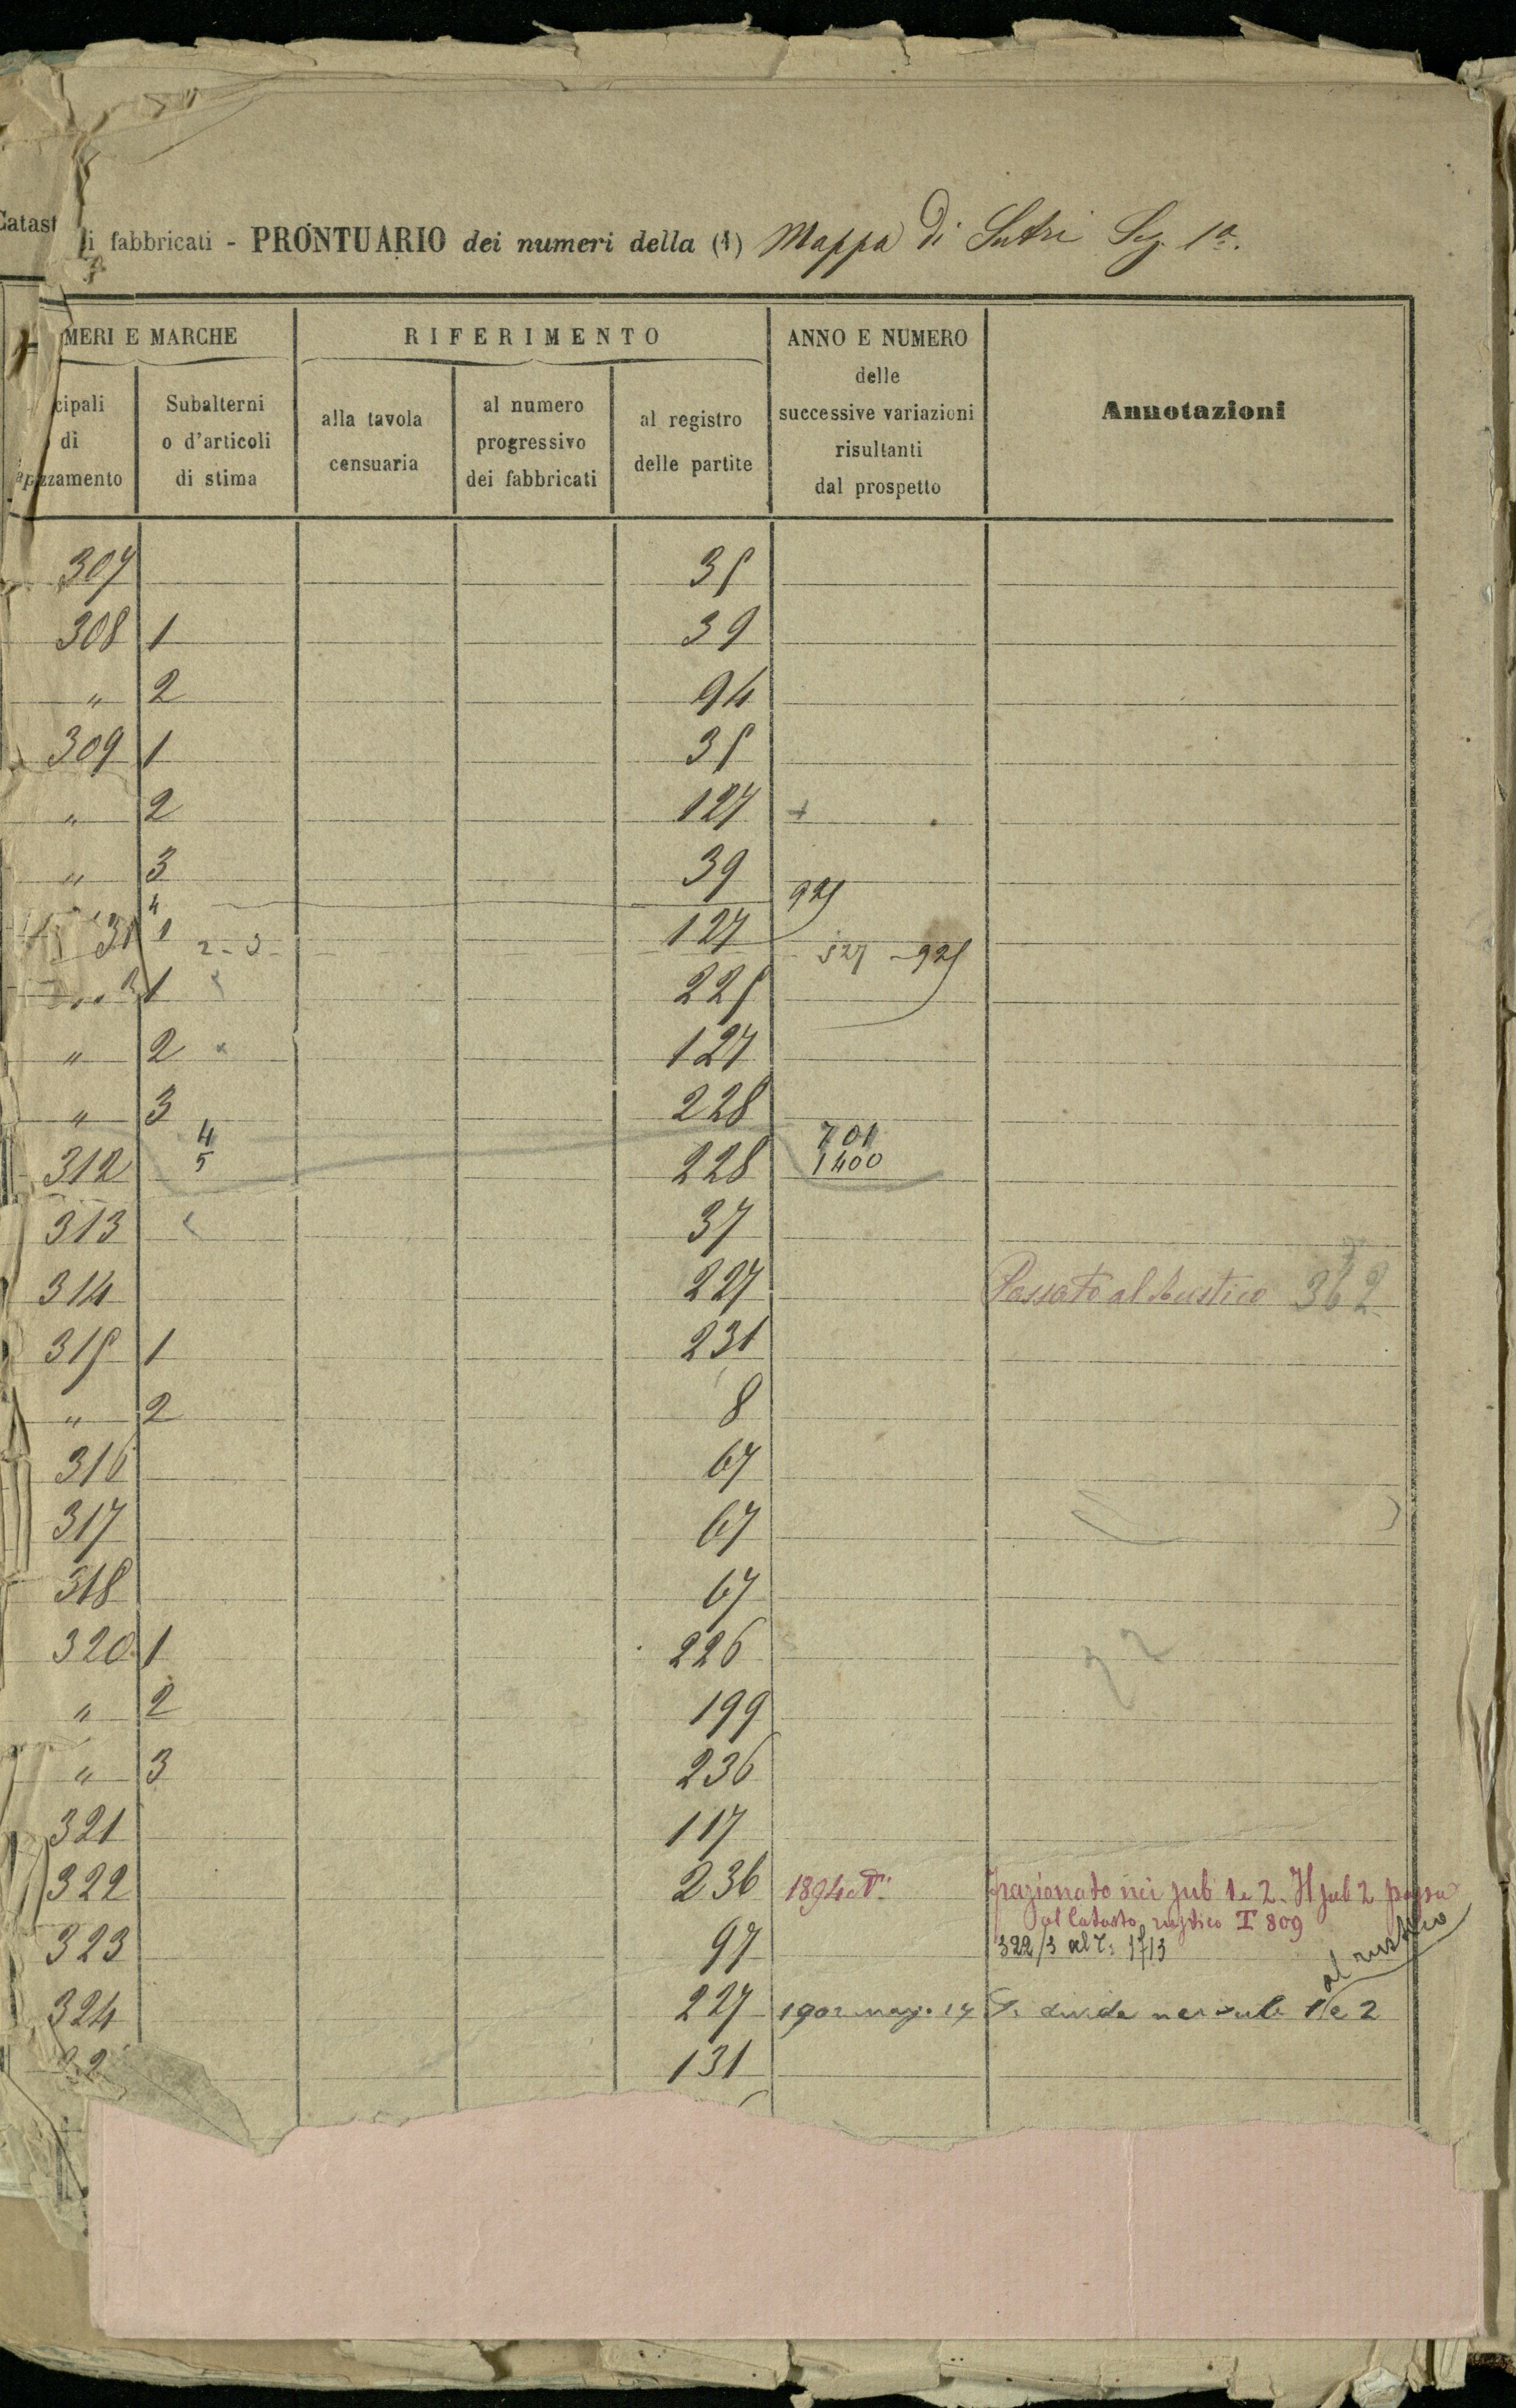 Catast
di fabbricati - PRONTUARIO dei numeri della (1) Mappa di Sutri Sez. 1ª.
MERI E MARCHE
RIFERIMENTO
ANNO E NUMERO
delle
successive variazioni
risultanti
dal prospetto
Annotazioni
cipali
di
apezzamento
Subalterni
o d'articoli
di stima
alla tavola
censuaria
al numero
progressivo
dei fabbricati
al registro
delle partite
307 35
308 1 39
" 2 94
309 1 35
" 2 127 +
" 3 39
4 925
31 1 2-3 127 527 - 925
1 225
" 2 127
" 3 228
4 701
312 5 228 1400
313 37
314 227 Passato al Rustico 362
315 1 231
" 2 8
316 67
317 67
318 67
320 1 226
" 2 199
" 3 236
321 117
322 236 1894 frazionato nei sub 1 e 2. Il sub 2 passa
al Catasto rustico T 809
323 97 322/3 al T. 1713
al rustico
324 227 1902 magg. 17 Si divide nei sub 1 e 2
32 131